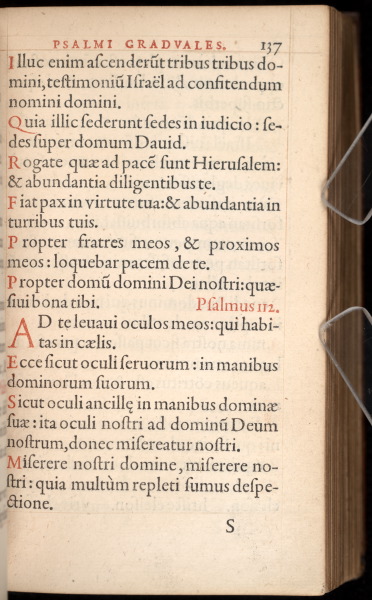 PSALMI GRADVALES. 137
Illuc enim ascenderūt tribus tribus do-
mini, testimoniū Israël ad confitendum
nomini domini.
Quia illic sederunt sedes in iudicio : se-
des super domum Dauid.
Rogate quæ ad pacē sunt Hierusalem:
& abundantia diligentibus te.
Fiat pax in virtute tua: & abundantia in
turribus tuis.
Propter fratres meos, & proximos
meos : loquebar pacem de te.
Propter domū domini Dei nostri: quæ-
siui bona tibi. Psalmus 112.
AD te leuaui oculos meos: qui habi-
tas in cælis.
Ecce sicut oculi seruorum : in manibus
dominorum suorum.
Sicut oculi ancillę in manibus dominæ
suæ : ita oculi nostri ad dominū Deum
nostrum, donec misereatur nostri.
Miserere nostri domine, miserere no-
stri : quia multùm repleti sumus despe-
ctione.
S